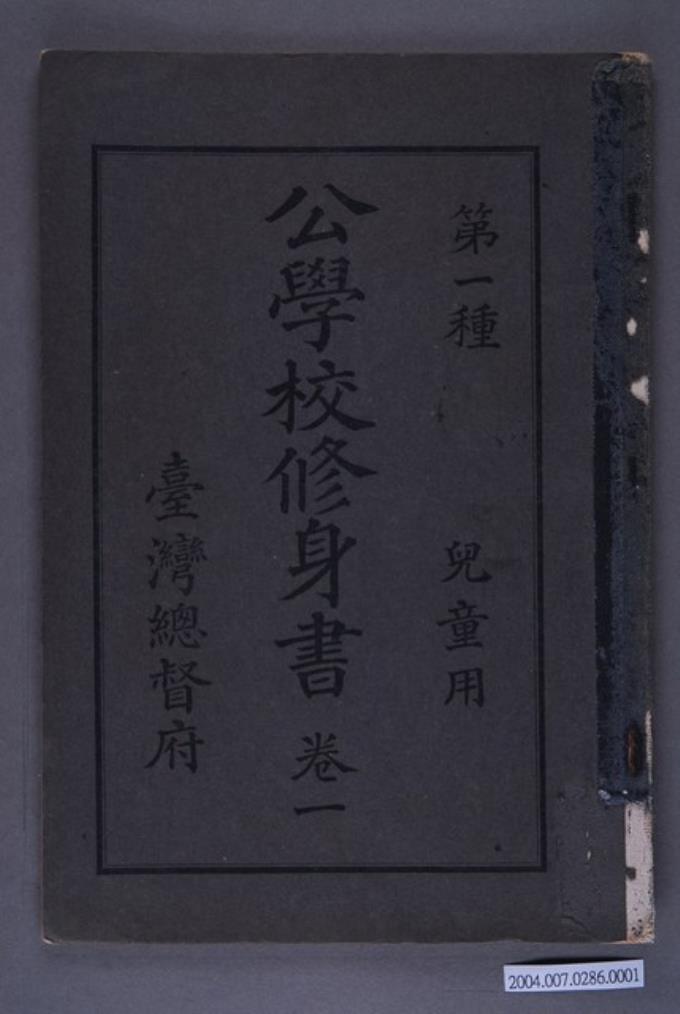 第一種 兒童用
公學校修身書 卷一
臺灣總督府
2004.007.0286.0001